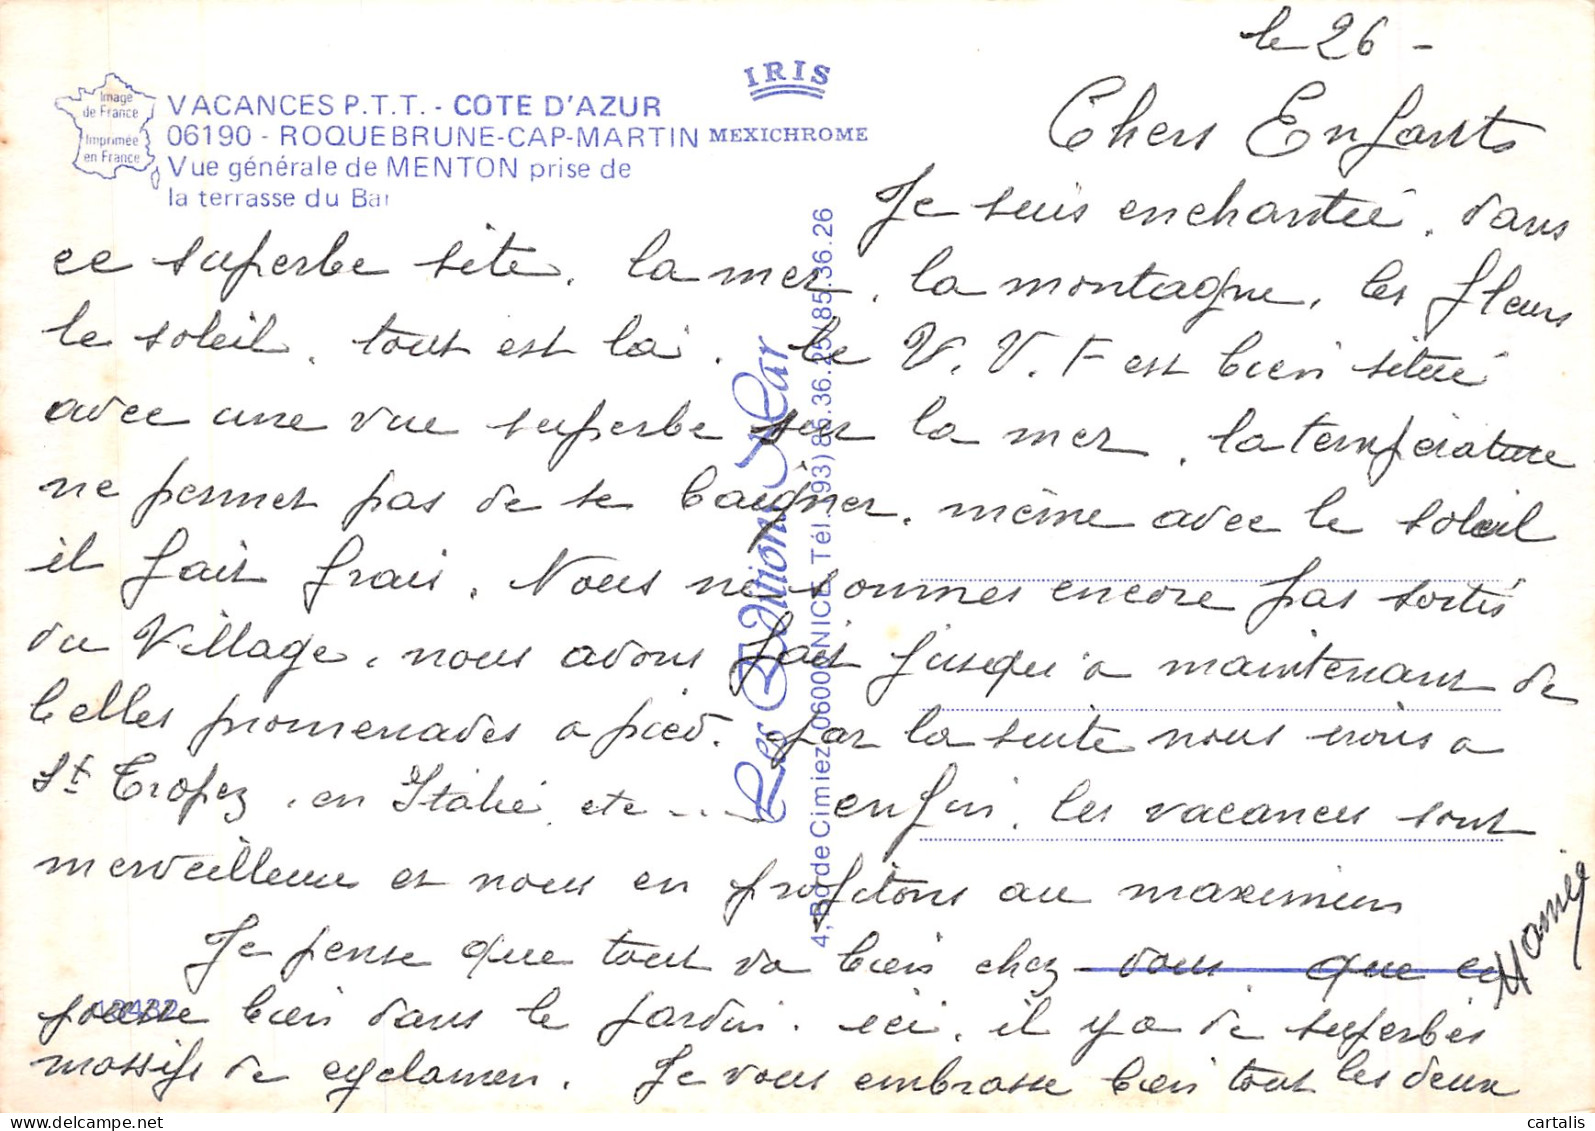 le 26 -
IRIS
MEXICHROME
Image
de France
Imprimée
en France
VACANCES P.T.T. - COTE D'AZUR
06190 - ROQUEBRUNE-CAP-MARTIN
Vue générale de MENTON prise de
la terrasse du Bar
Chers Enfants
Je suis enchantée, dans
ce superbe site, la mer, la montagne, les fleurs
le soleil, tout est là. le V.V.F est bien situé
avec une vue superbe sur la mer, la température
ne permet pas de se baigner, même avec le soleil
il fait frais. Nous ne sommes encore pas sortis
du Village, nous avons fait jusqu'a maintenant de
belles promenades a pied. par la suite nous irons a
St Tropez, en Italie, etc .... enfin, les vacances sont
merveilleuses et nous en profitons au maximum
Je pense que tout va bien chez vous que ça
pousse bien dans le jardin. ici, il y a de superbes
massifs de cyclamen. Je vous embrasse bien tout les deux
Mamie
Les Editions Mar
4, Bd de Cimiez, 06000 NICE Tél. (93) 85.36.25 / 85.36.26